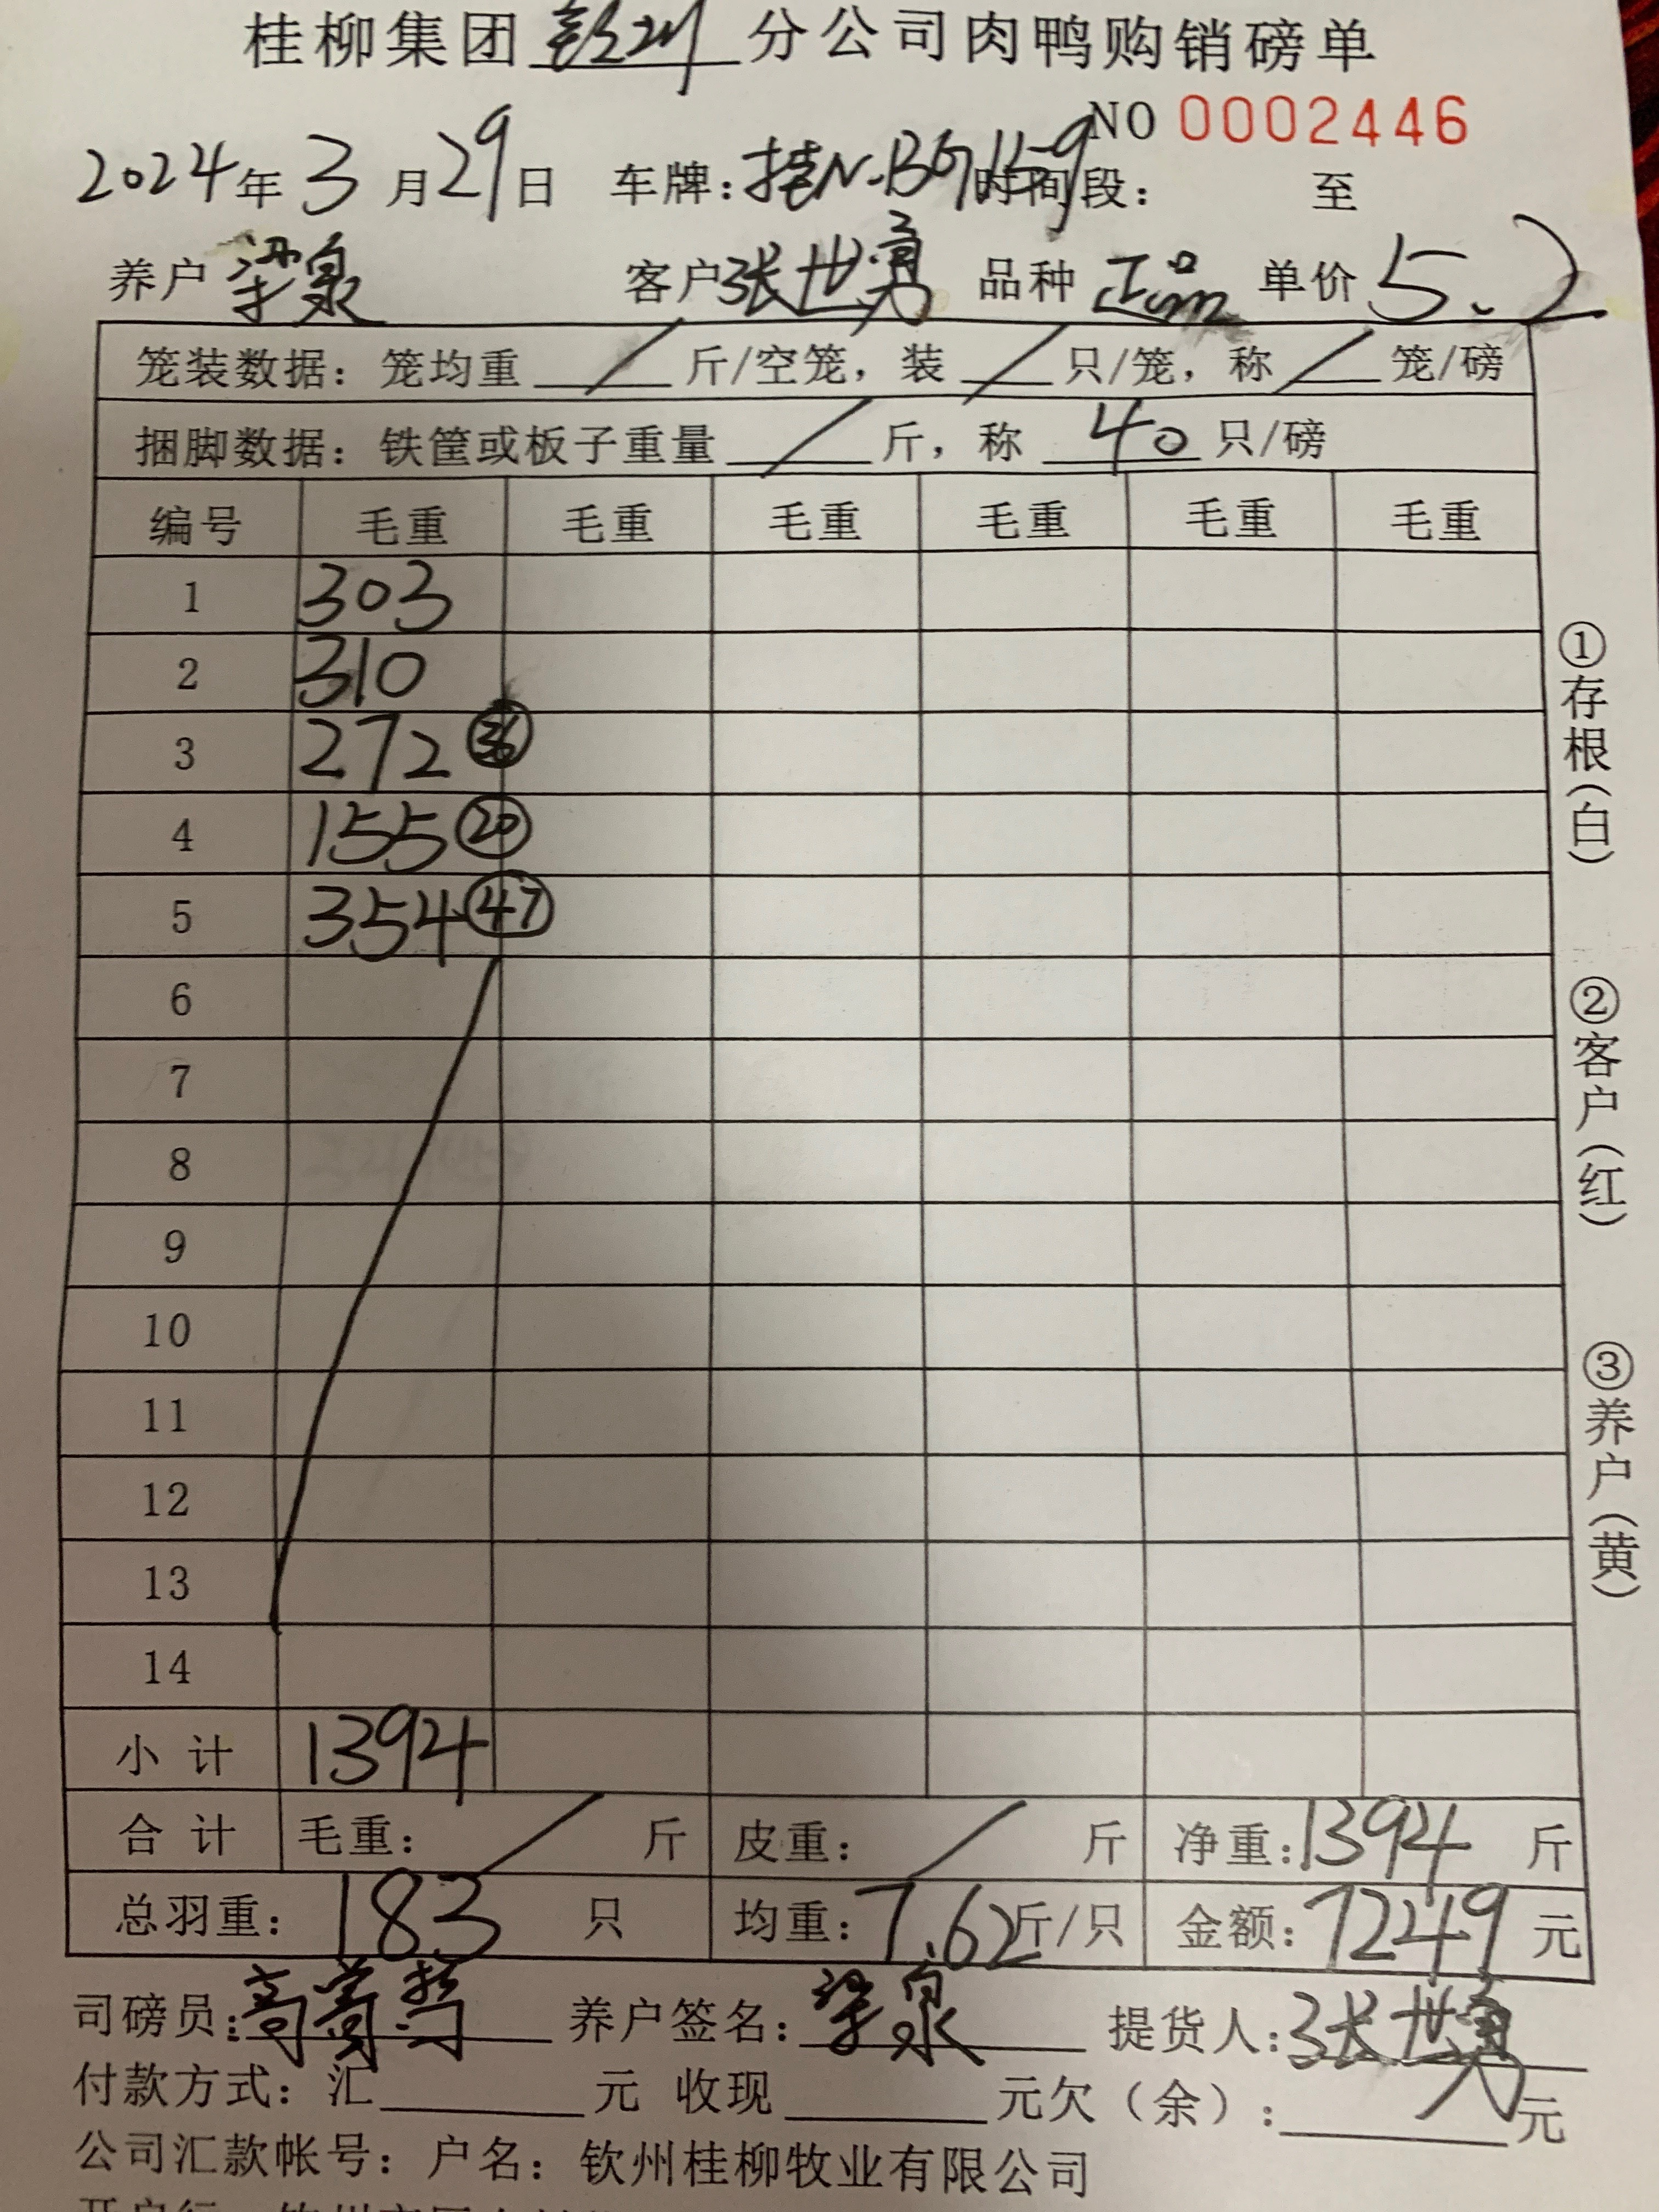 桂柳集团钦州分公司肉鸭购销磅单
NO 0002446
2024年3月29日 车牌：桂N.BG1159 时间段： 至
养户 梁泉 客户 张世勇 品种 正品 单价 5.2
笼装数据：笼均重 / 斤/空笼，装 / 只/笼，称 / 笼/磅
捆脚数据：铁筐或板子重量 / 斤，称 40 只/磅
编号 毛重 毛重 毛重 毛重 毛重 毛重
1 303
2 310
3 272 36
4 155 20
5 354 47
6
7
8
9
10
11
12
13
14
小计 1394
合计 毛重： / 斤 皮重： / 斤 净重：1394 斤
总羽重：183 只 均重：7.62斤/只 金额：7249 元
司磅员： 养户签名：梁泉 提货人：张世勇
付款方式：汇 元 收现 元欠（余）： 元
公司汇款帐号：户名：钦州桂柳牧业有限公司
①存根（白）
②客户（红）
③养户（黄）